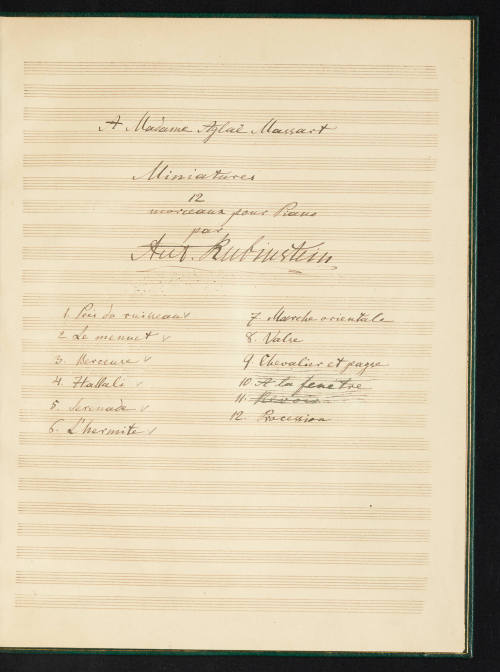 A Madame Aglaé Massart
Miniatures
12
morceaux pour Piano
par
Ant. Rubinstein
1. Près du ruisseau √
2. Le menuet √
3. Berceuse √
4. Hallali √
5. Serenade √
6. L'hermite √
7. Marche orientale
8. Valse
9. Chevalier et page
10. A la fenetre
11. Revoir
12. Procession